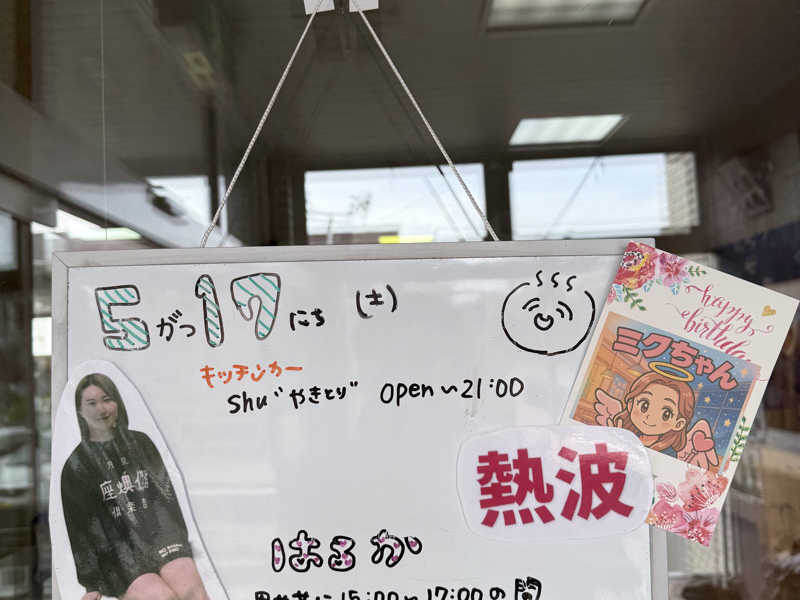 5がつ17にち (土)
キッチンカー
shu "やきとり" open〜21:00
happy
birthday
ミクちゃん
熱波
はるか
15:00〜17:00の間